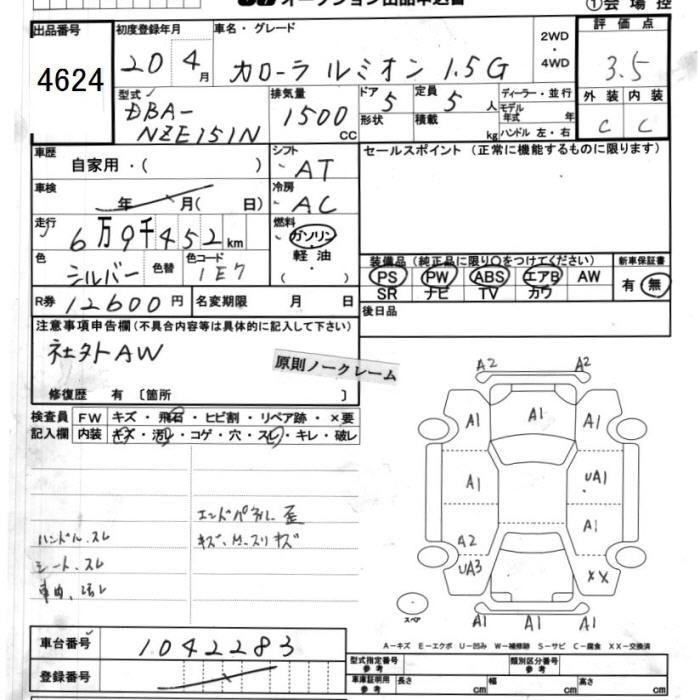 オークション出品申込書 ①会場控
出品番号 4624
初度登録年月 20 4月
車名・グレード カローラ ルミオン 1.5G
2WD・4WD
評価点 3.5
外装 C 内装 C
型式 DBA-NZE151N
排気量 1500 CC
ドア 5 形状
定員 5人 積載 kg
ディーラー・並行
モデル年式 年
ハンドル 左・右
車歴 自家用・( )
シフト AT
セールスポイント (正常に機能するものに限ります)
車検 年 月( 日)
冷房 AC
走行 6万9千452km
燃料 ガソリン 軽油 ( ・ )
色 シルバー 色替 色コード 1E7
装備品 (純正品に限り○をつけてください) 新車保証書
PS PW ABS エアB AW 有・無
SR ナビ TV カワ
R券 12600円 名変期限 月 日
後日品
注意事項申告欄(不具合内容等は具体的に記入して下さい)
社外AW
原則ノークレーム
修復歴 有 〔箇所 〕
検査員 FW キズ・飛石・ヒビ割・リペア跡・×要
記入欄 内装 キズ・汚レ・コゲ・穴・スレ・キレ・破レ
エンドパネル 歪
ハンドル.スレ キズ.M.スリキズ
シート.スレ
車内.汚レ
A2 A2
A1 A1 A1
A1 UA1
A1
A2
UA3 XX
A1 A1 A1
スペア
A-キズ E-エクボ U-凹み W-補修跡 S-サビ C-腐食 XX-交換済
車台番号 1042283
登録番号
型式指定番号 参考 類別区分番号 参考
車庫証明用 参考 長さ cm 幅 cm 高さ cm